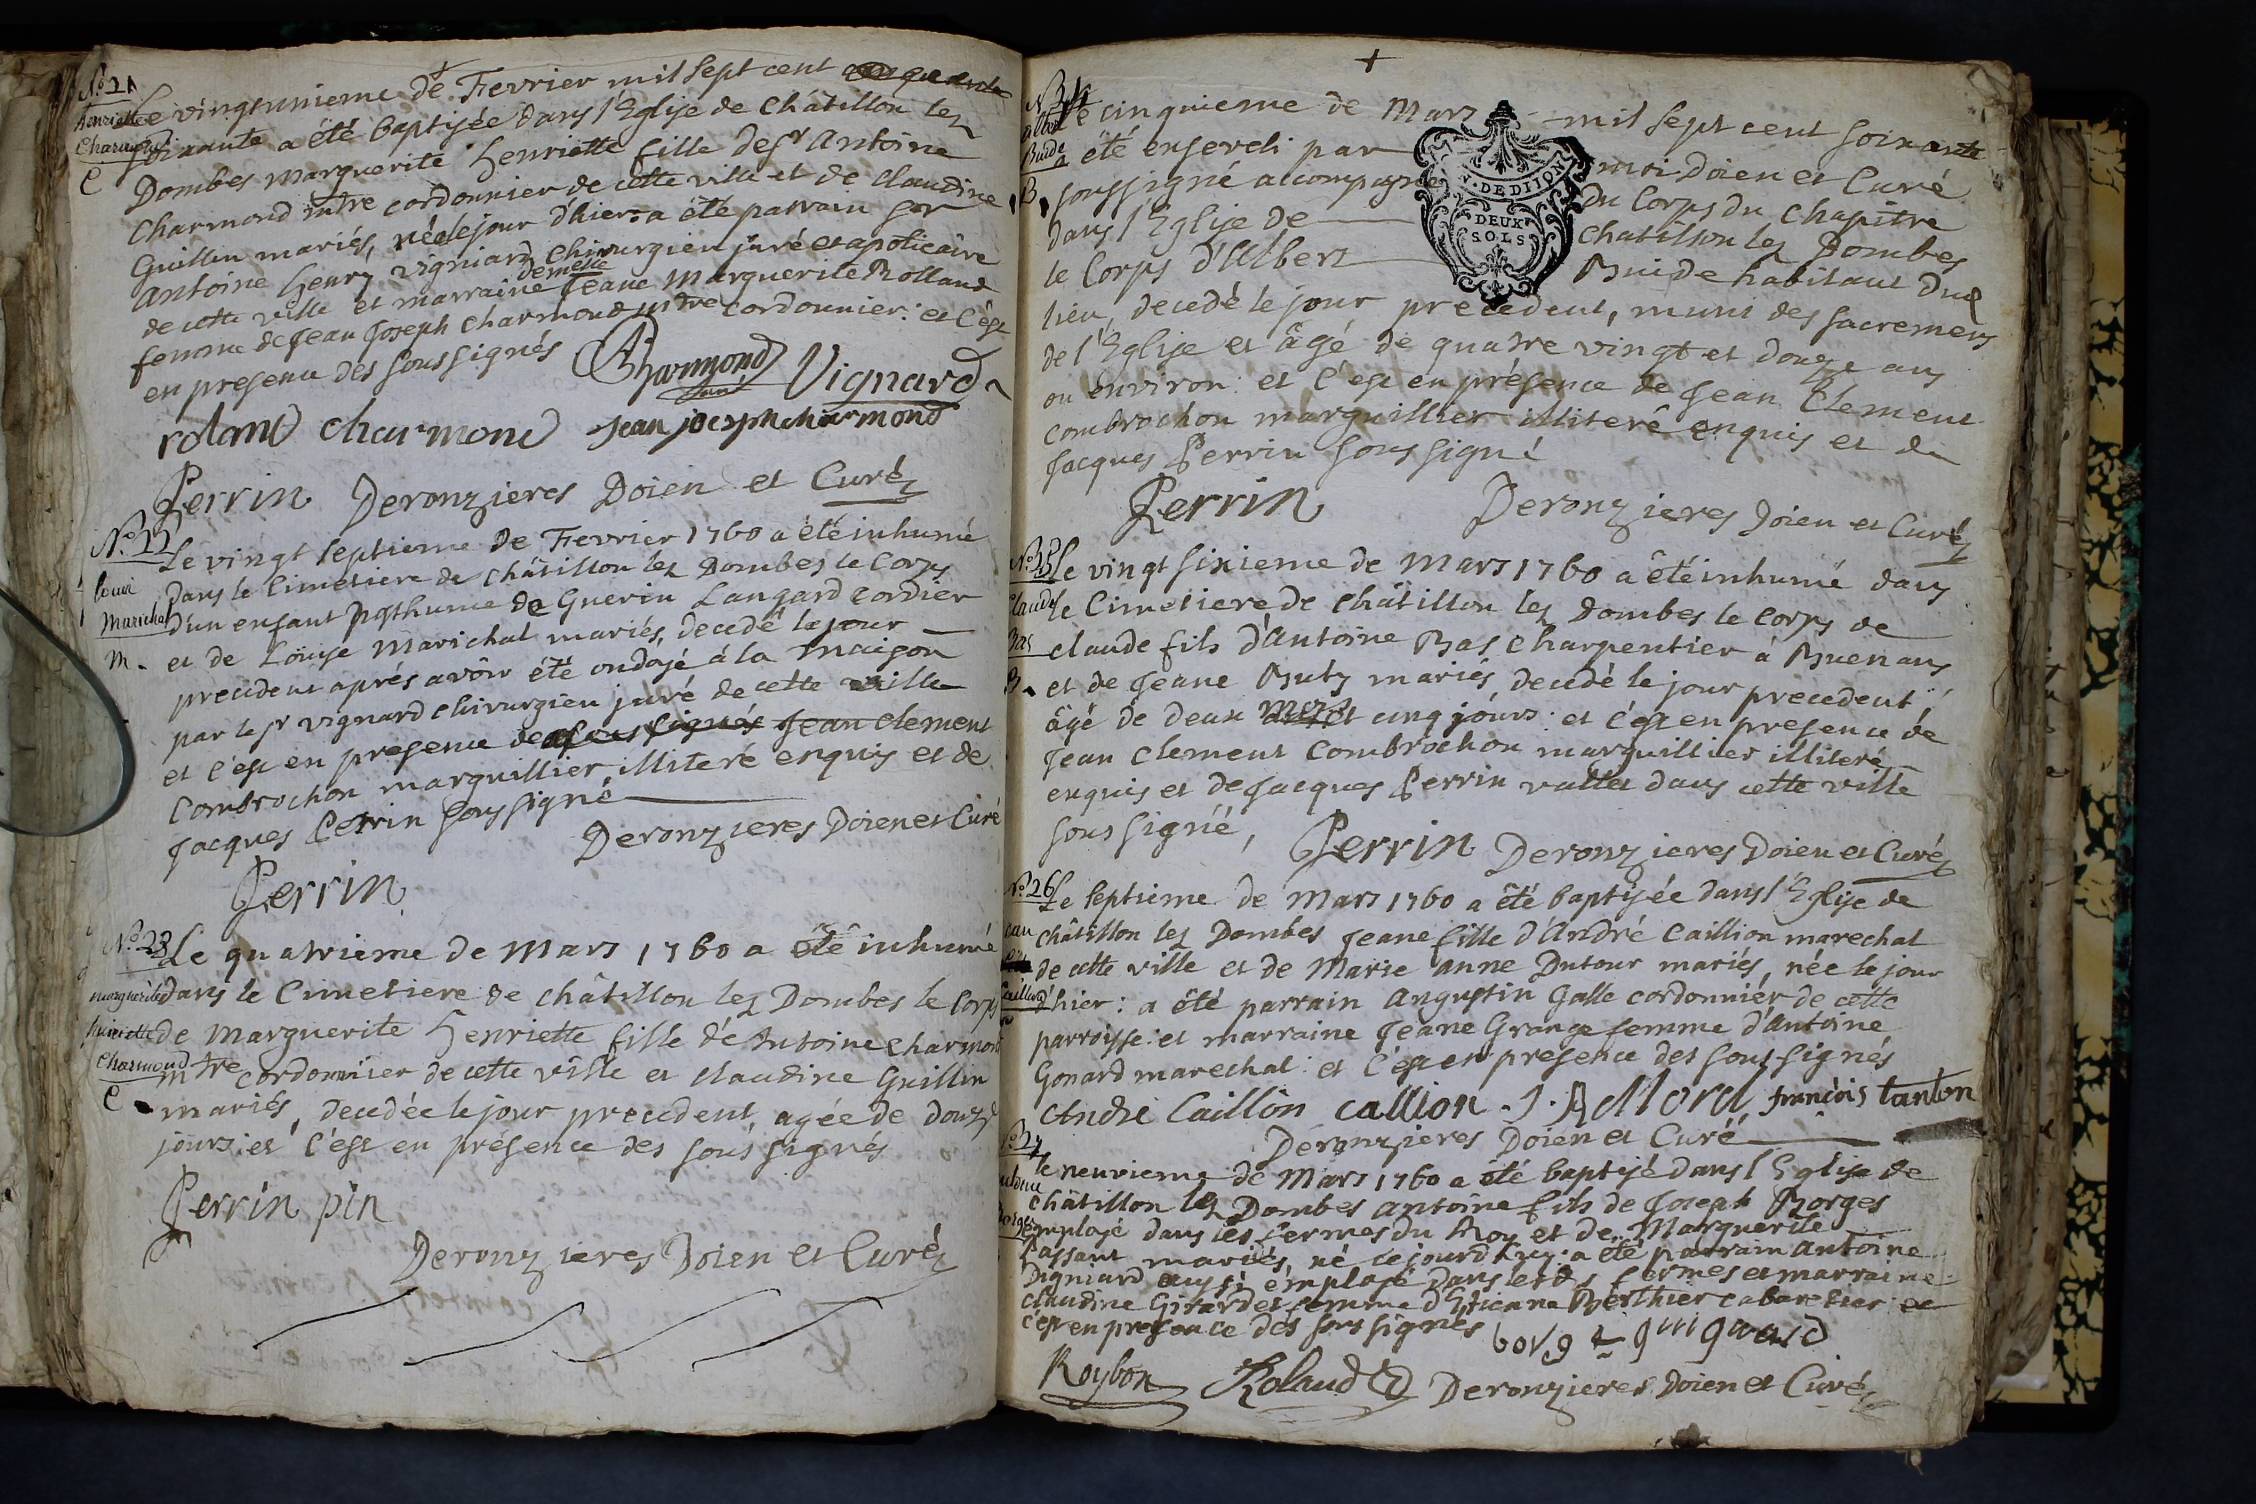 N.° 21
henriette
Charmond
C
Le vingtunieme de Fevrier mil sept cent
soixante a été baptisée dans l'Eglise de Châtillon lez
Dombes marguerite henriette fille de sr Antoine
Charmond mtre cordonnier de cette ville et de claudine
Guillin mariés, née le jour d'hier: a été parrain sr
Antoine henry vigniard chirurgien juré et apoticaire
de cette ville et marraine demelle Jeane Marguerite Rolland
femme de Jean Joseph Charmond mtre cordonnier: et c'est
en presence des soussignés
Charmond Vignard
roland charmond Jean joesph charmond
Perrin Deronzieres Doien et Curé
N.° 22
Marichal
M.
Le vingt septieme de Fevrier 1760 a été inhumé
Dans le Cimetiere de Châtillon lez Dombes le Corps
d'un enfant posthume de Guerin Langard cordier
et de Louise Marichal mariés, decedé le jour
precedent aprés avoir été ondoyé á la maison
par le sr vignard chirurgien juré de cette ville
et c'est en presence de soussignés Jean Clement
Combrochon marguillier, illiteré enquis et de
Jacques Perrin soussigné
Deronzieres Doien et Curé
Perrin
N.° 23
marguerite
henriette
Charmond
C
Le quatrieme de Mars 1760 a été inhumé
dans le Cimetiere de châtillon lez Dombes le Corps
de Marguerite Henriette fille de Antoine Charmond
mtre cordonnier de cette ville et claudine Guillin
mariés, decedée le jour precedent, agée de douze
jours: et c'est en présence des soussignés
Perrin pin
Deronzieres Doien et Curé
Buide
B.
Le cinquieme de Mars mil sept cent soixante
a été enseveli par moi Doien et Curé
soussigné acompagné du Corps du Chapitre
dans l'Eglise de Chatillon lez Dombes
le Corps d'Albert Buide habitant dud
lieu, decedé le jour precedent, muni des sacremens
de l'Eglise et âgé de quatre vingt et douze ans
ou environ: et c'est en présence de Jean Clement
Combrochon marguillier illiteré enquis et de
Jacques Perrin soussigné
N. DE DIJON
DEUX
SOLS
Perrin Deronzieres Doien et Curé
Claude
Bas
B.
Le vingt sixieme de Mars 1760 a été inhumé dans
le Cimetiere de châtillon lez Dombes le corps de
claude fils d'antoine Bas charpentier à Buenans
et de Jeane Buty mariés, decedé le jour precedent,
âgé de deux mois et cinq jours: et c'est en presence de
Jean Clement Combrochon marguillier illiteré
enquis et de Jacques Perrin vallet dans cette ville
soussigné,
Perrin Deronzieres Doien et Curé
N.° 26
Le septieme de Mars 1760 a été baptisée dans l'Eglise de
Châtillon lez Dombes Jeane fille d'André Caillion marechal
de cette ville et de Marie Anne Dutour mariés, née le jour
d'hier: a été parrain Augustin Galle cordonnier de cette
parroisse: et marraine Jeane Grange femme d'Antoine
Gonard marechal: et c'est en presence des soussignés
André Caillion callion françois tanton
Deronzieres Doien et Curé
Le neuvieme de Mars 1760 a été baptisé dans l'Eglise de
Châtillon lez Dombes Antoine fils de Joseph Borges
employé dans les fermes du Roy et de Marguerite
Passant mariés, né cejourd'huy: a été parrain Antoine
Digniard aussi employé dans fermes et marraine
Claudine Girardet femme d'Etienne Berthier cabaretier: et
c'est en presence des soussignés
Roybon Roland Deronzieres Doien et Curé